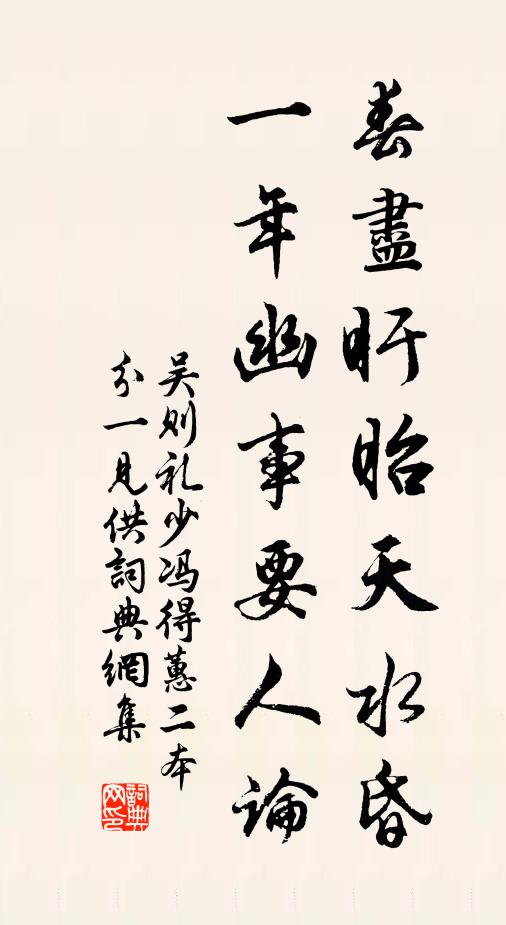 春盡盱眙天水昏
一年幽事要人論
吴则礼少冯得蕙二本
分一见供詞典網集
詞典网印